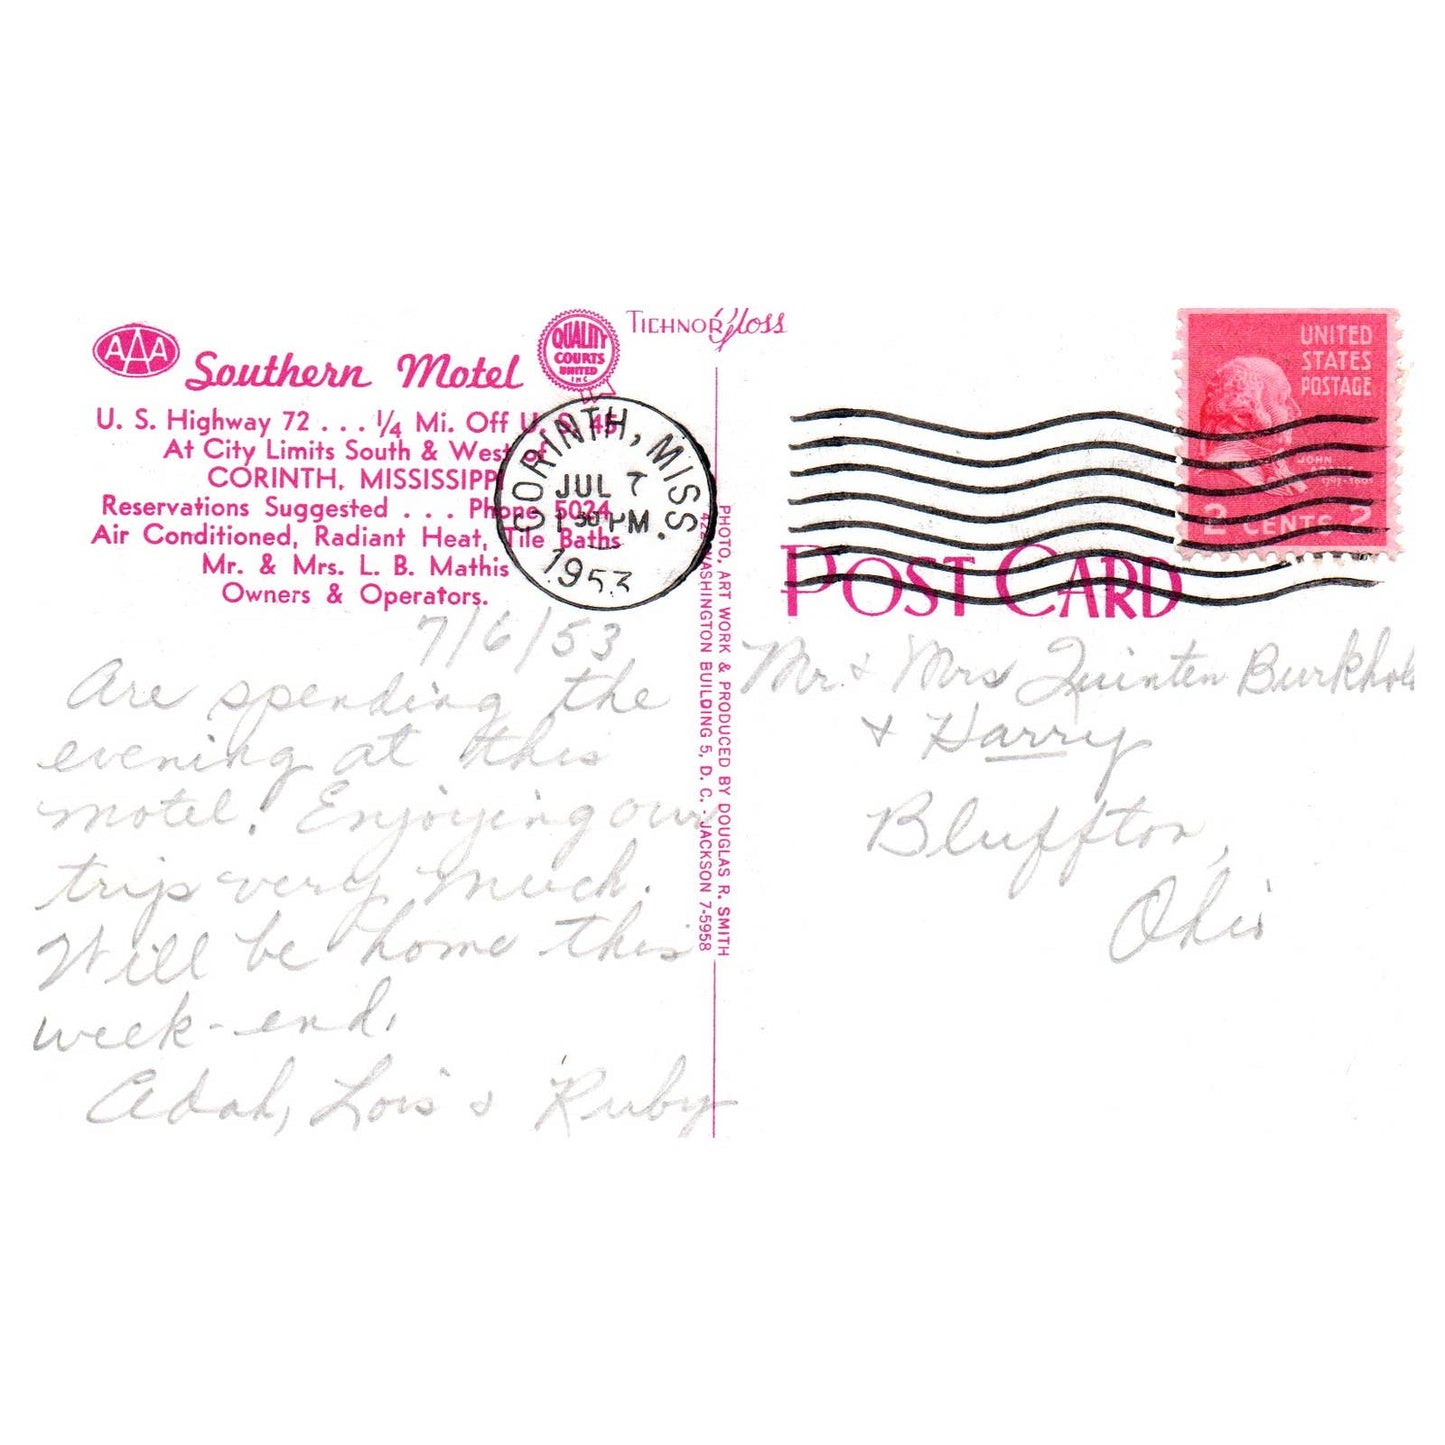 AAA
Southern Motel
QUALITY
COURTS
UNITED
INC
TICHNOR Gloss
U. S. Highway 72 . . . 1/4 Mi. Off U. S. 45
At City Limits South & West of
CORINTH, MISSISSIPPI
Reservations Suggested . . . Phone 5024
Air Conditioned, Radiant Heat, Tile Baths
Mr. & Mrs. L. B. Mathis
Owners & Operators.
CORINTH, MISS.
JUL 7
1 30 PM
1953
7/6/53
Are spending the
evening at this
motel. Enjoying our
trip very much.
Will be home this
week-end.
Adah, Lois & Ruby
PHOTO, ART WORK & PRODUCED BY DOUGLAS R. SMITH
422 WASHINGTON BUILDING 5, D. C. · JACKSON 7-5958
UNITED
STATES
POSTAGE
JOHN
2 CENTS 2
POST CARD
Mr. & Mrs Quinten Burkhol
& Harry
Bluffton,
Ohio